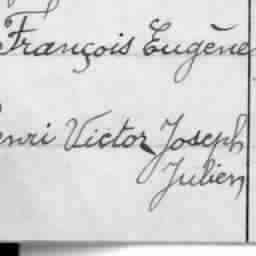 François Eugène
enri Victor Joseph
Julien